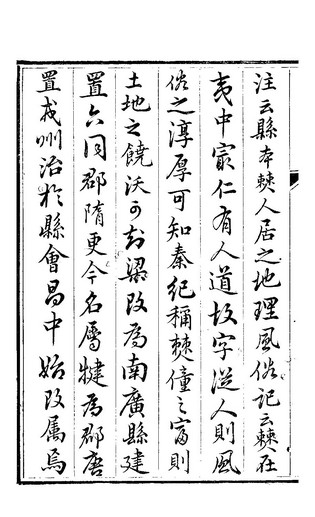 注云縣本僰人居之地理風俗記云僰在
夷中最仁有人道故字從人則風
俗之淳厚可知秦紀稱僰僮之富則
土地之饒沃可知梁改為南廣縣建
置六同郡隋更今名屬犍為郡唐
置戎州治於縣會昌中始改屬焉